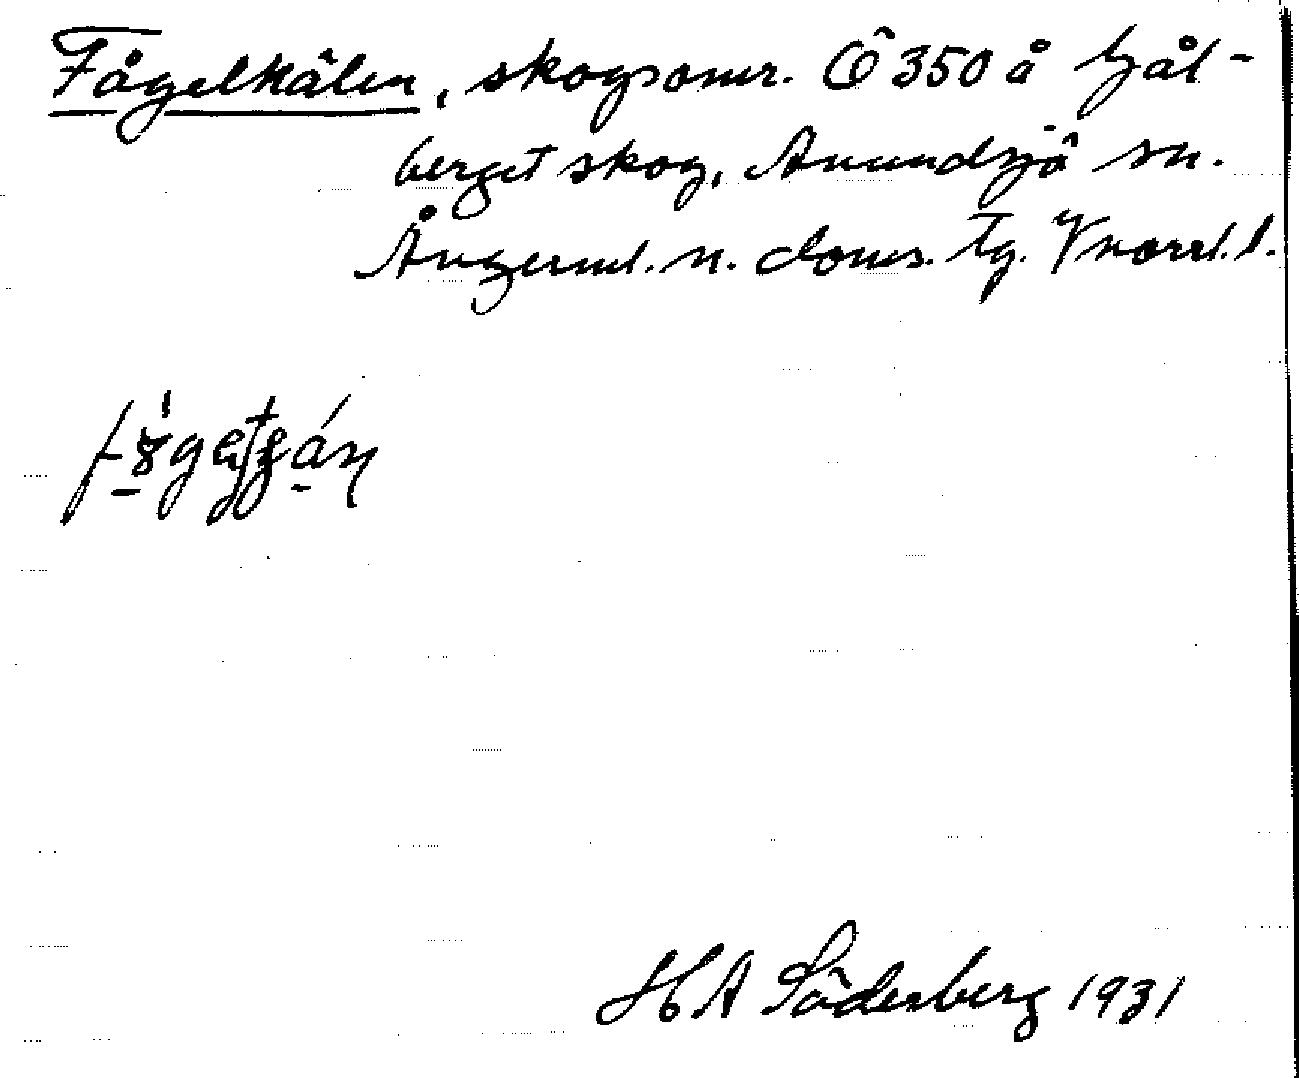 Fågelkälen, skogsomr. Ö 350 å Hjål-
berget skog, Anundsjö sn.
Ångerml. n. doms. tg. Vnorrl. l.
H A Söderberg 1931